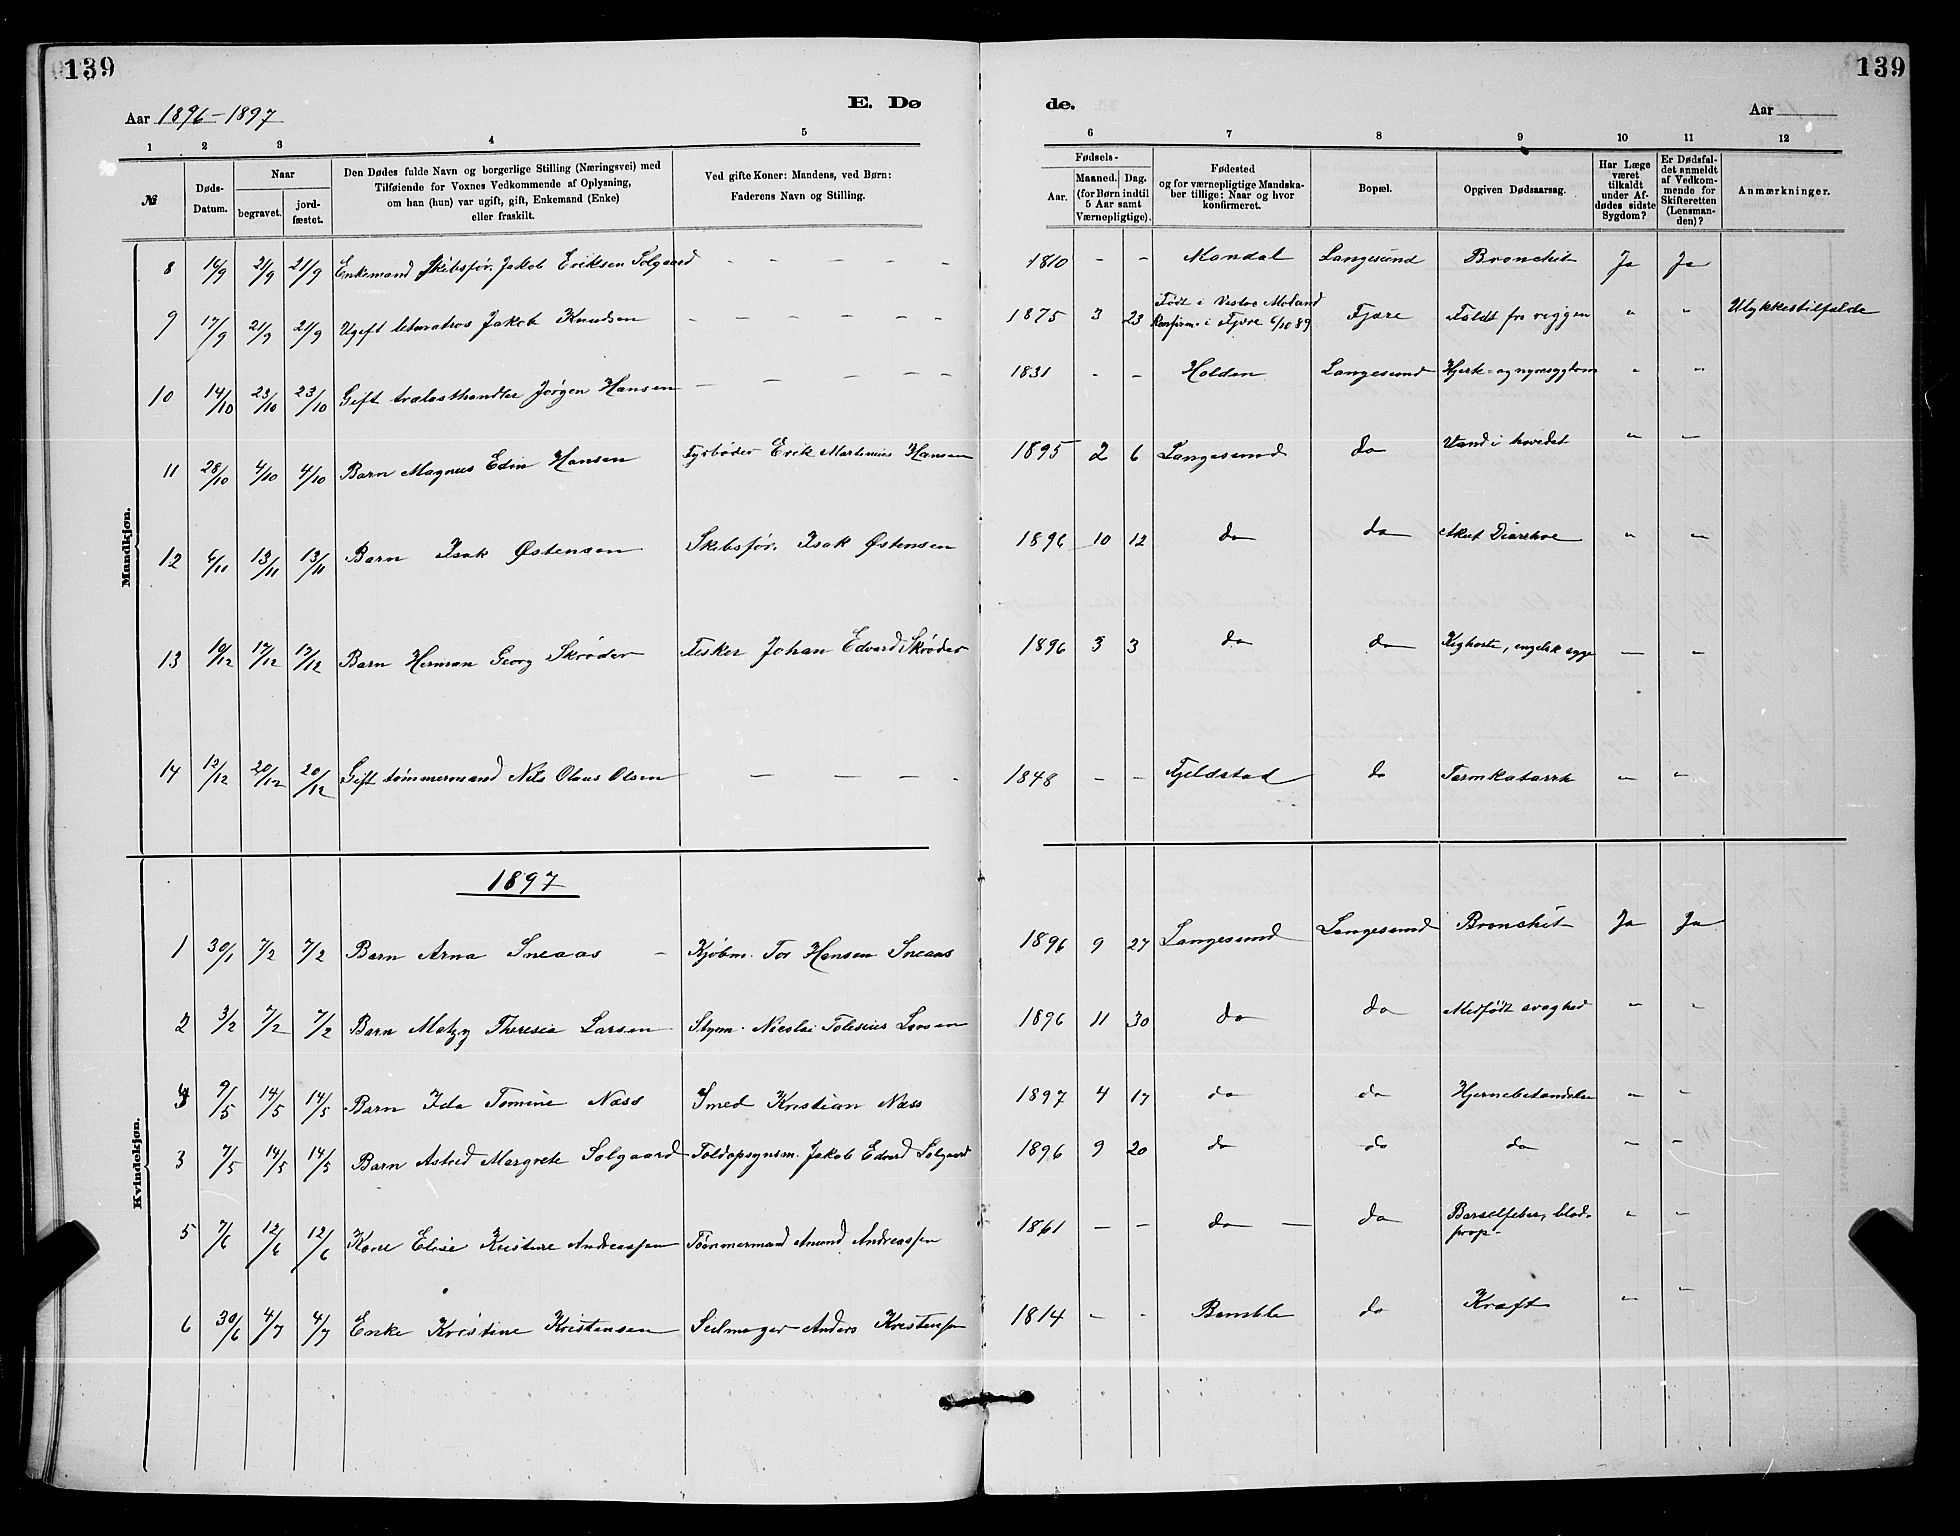 139
139
Aar 1896-1897
E. Dø
de.
Aar
1 2 3 4 5 6 7 8 9 10 11 12
№
Døds-Datum.
Naar
begravet.
jord-fæstet.
Den Dødes fulde Navn og borgerlige Stilling (Næringsvei) med
Tilføiende for Voxnes Vedkommende af Oplysning,
om han (hun) var ugift, gift, Enkemand (Enke)
eller fraskilt.
Ved gifte Koner: Mandens, ved Børn:
Faderens Navn og Stilling.
Fødsels-
Aar.
Maaned.
Dag.
(for Børn indtil
5 Aar samt
Værnepligtige).
Fødested
og for værnepligtige Mandska-
ber tillige: Naar og hvor
konfirmeret.
Bopæl.
Opgiven Dødsaarsag.
Har Læge
været
tilkaldt
under Af-
dødes sidste
Sygdom?
Er Dødsfal-
det anmeldt
af Vedkom-
mende for
Skifteretten
(Lensman-
den)?
Anmærkninger.
Mandkjøn.
8 16/9 21/9 21/9 Enkemand Skibsfør. Jakob Eriksen Solgaard - - - - - 1810 - - Mandal Langesund Bronchit Ja Ja
9 17/9 21/9 21/9 Ugift letmatros Jakob Knudsen - - - - - - 1875 3 23 Født i Vestre Moland Konfirm. i Fjære 6/10 89 Fjære Faldt fra riggen " " Ulykkestilfælde
10 14/10 23/10 23/10 Gift trælasthandler Jørgen Hansen - - - - - 1831 - - Holden Langesund Hjerte- og nyresygdom " "
11 28/10 4/10 4/10 Barn Magnus Edin Hansen Fyrbøder Erik Martinius Hansen 1895 2 6 Langesund do Vand i hovedet " "
12 6/11 13/11 13/11 Barn Isak Østensen Skibsfør. Isak Østensen 1896 10 12 do do Akut Diarrhoe " "
13 10/12 17/12 17/12 Barn Herman Georg Skrøder Fisker Johan Edvard Skrøder 1896 3 3 do do Kighoste, engelsk syge " "
14 12/12 20/12 20/12 Gift tømmermand Nils Olaus Olsen - - - - 1848 - - Fjeldstad do Tarmkatarrh " "
1897
Kvindekjøn.
1 30/1 7/2 7/2 Barn Arna Sneaas - Kjøbm. Tor Hansen Sneaas 1896 9 27 Langesund Langesund Bronchit Ja Ja
2 3/2 7/2 7/2 Barn Matzy Theresia Larsen Styrm. Nicolai Larsen 1896 11 30 do do Medfødt svaghed " "
4 9/5 14/5 14/5 Barn Ida Tomine Næss Smed Kristian Næss 1897 4 17 do do Hjernebetændelse " "
3 7/5 14/5 14/5 Barn Astrid Margrete Solgaard Toldopsynsm. Jakob Edvard Solgaard 1896 9 20 do do do " "
5 7/6 12/6 12/6 Kone Elise Kristine Andreassen Tømmermand Amund Andreassen 1861 - - do - do Barselfeber, blodprop- " "
6 30/6 4/7 4/7 Enke Kristine Kristensen Seilmager Anders Kristensen 1814 - - Bamble do Kræft " "